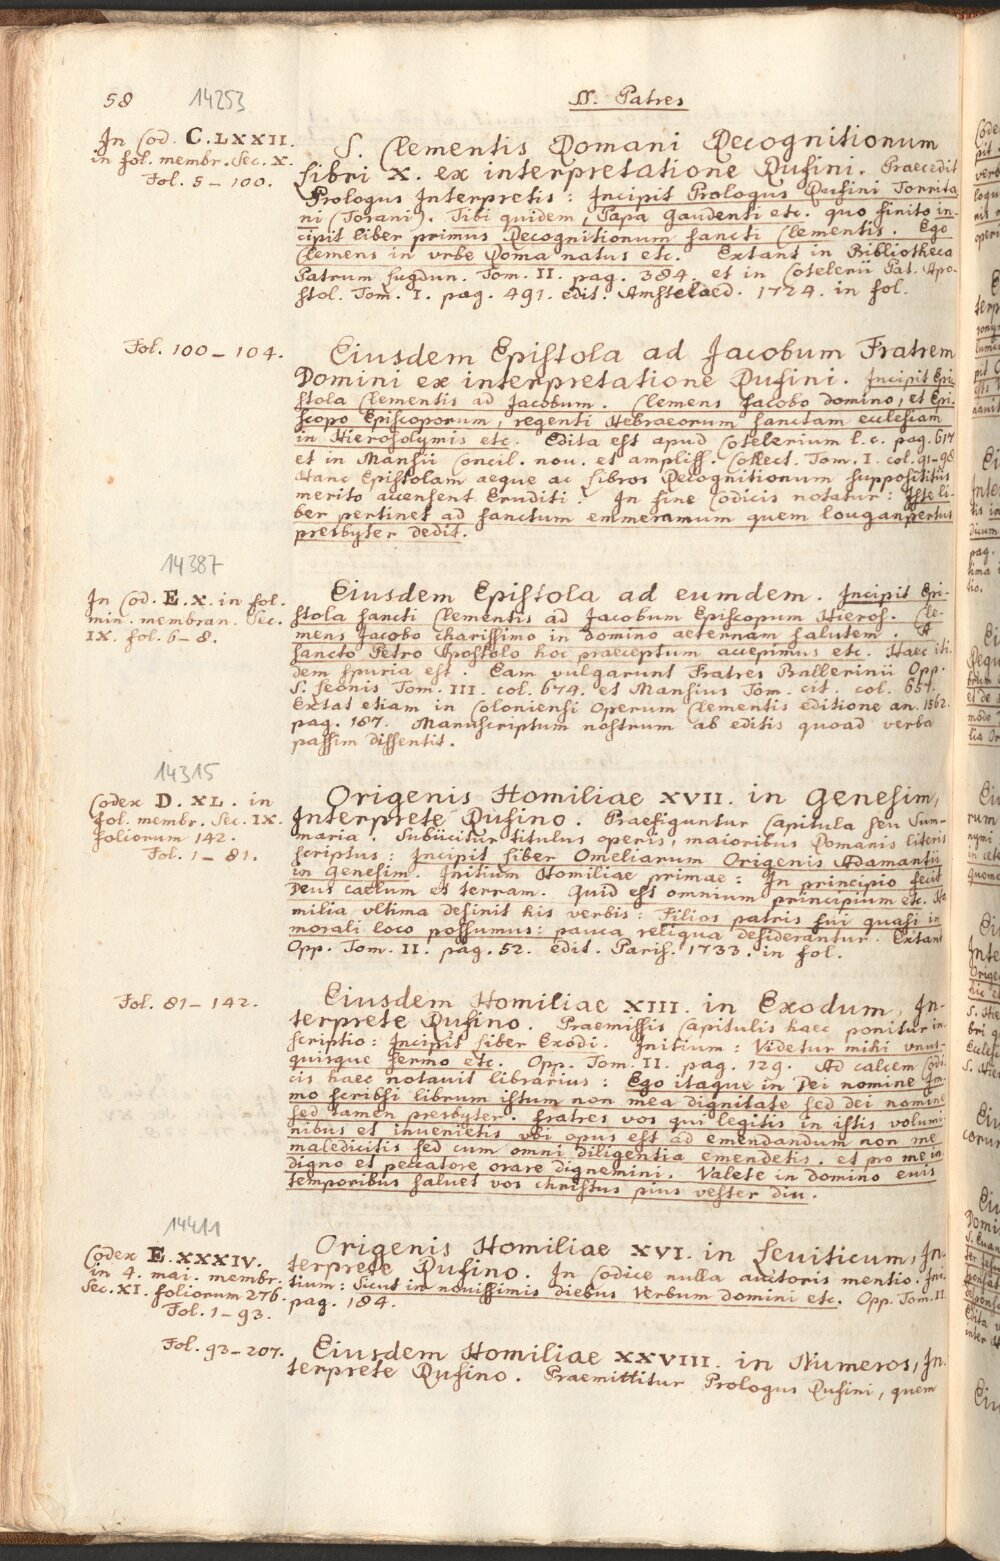 58
14253
SS. Patres
In Cod. C.LXXII.
in fol. membr. Sec. X.
Fol. 5–100.
S. Clementis Romani Recognitionum
Libri X. ex interpretatione Rufini. Praecedit
Prologus Interpretis: Incipit Prologus Rufini Torrita
ni (Torani). Tibi quidem, Papa Gaudenti etc. quo finito in-
cipit liber primus Recognitionum sancti Clementis. Ego
Clemens in vrbe Roma natus etc. Extant in Bibliotheca
Patrum Lugdun. Tom. II. pag. 384. et in Cotelerii Pat. Apo-
stol. Tom. I. pag. 491. edit. Amstelaed. 1724. in fol.
Fol. 100–104.
Eiusdem Epistola ad Jacobum Fratrem
Domini ex interpretatione Rufini. Incipit Epi-
stola Clementis ad Jacobum. Clemens Jacobo domino, et Epi-
scopo Episcoporum, regenti Hebraeorum sanctam ecclesiam
in Hierosolymis etc. Edita est apud Cotelerium l.c. pag. 617
et in Mansii Concil. nou. et ampliss. Collect. Tom. I. col. 91–98
Hanc Epistolam aeque ac Libros Recognitionum supposititiis
merito accensent Eruditi. In fine Codicis notatur: Iste li-
ber pertinet ad sanctum emmeramum quem louganpertus
presbyter dedit.
14387
In Cod. E.X. in fol.
min. membran. Sec.
IX. fol. 6–8.
Eiusdem Epistola ad eumdem. Incipit Epi-
stola sancti Clementis ad Jacobum Episcopum Hieros. Cle-
mens Jacobo charissimo in domino aeternam salutem. A
sancto Petro Apostolo hoc praeceptum accepimus etc. Haec iti-
dem spuria est. Eam vulgarunt Fratres Ballerinii Opp.
S. Leonis Tom. III. col. 674. et Mansius Tom. cit. col. 657.
Extat etiam in Coloniensi Operum Clementis editione an. 1562.
pag. 187. Manuscriptum nostrum ab editis quoad verba
passim dissentit.
14315
Codex D.XL. in
fol. membr. Sec. IX.
foliorum 142.
Fol. 1–81.
Origenis Homiliae XVII. in Genesim,
Interprete Rufino. Praefiguntur Capitula seu Sum-
maria. Subiicitur titulus operis, maioribus Romanis literis
scriptus: Incipit Liber Omeliarum Origenis Adamantii
in Genesim. Initium Homiliae primae: In principio fecit
Deus caelum et terram. Quid est omnium principium etc. Ho
milia vltima definit his verbis: Filios patris sui quasi in
morali loco possumus: pauca reliqua desiderantur. Extant
Opp. Tom. II. pag. 52. edit. Paris. 1733. in fol.
Fol. 81–142.
Eiusdem Homiliae XIII. in Exodum, In-
terprete Rufino. Praemissis Capitulis haec ponitur in-
scriptio: Incipit Liber Exodi. Initium: Videtur mihi vnus-
quisque sermo etc. Opp. Tom. II. pag. 129. Ad calcem Codi-
cis haec notauit librarius: Ego itaque in Dei nomine
mo scribsi librum istum non mea dignitate sed dei nomine
sed tamen presbyter. fratres vos qui legitis in istis volumi-
nibus et inuenietis vbi opus est ad emendandum non me
maledicitis sed cum omni diligentia emendetis. et pro me in
digno et peccatore orare dignemini. Valete in domino euis
temporibus saluet vos christus pius vester diu.
14411
Codex E.XXXIV.
in 4. mai. membr.
Sec. XI. foliorum 276.
Fol. 1–93.
Origenis Homiliae XVI. in Leuiticum, In-
terprete Rufino. In Codice nulla auctoris mentio. Ini-
tium: Sicut in nouissimis diebus Verbum domini etc. Opp. Tom. II.
pag. 184.
Fol. 93–207.
Eiusdem Homiliae XXVIII. in Numeros, In-
terprete Rufino. Praemittitur Prologus Rufini, quem